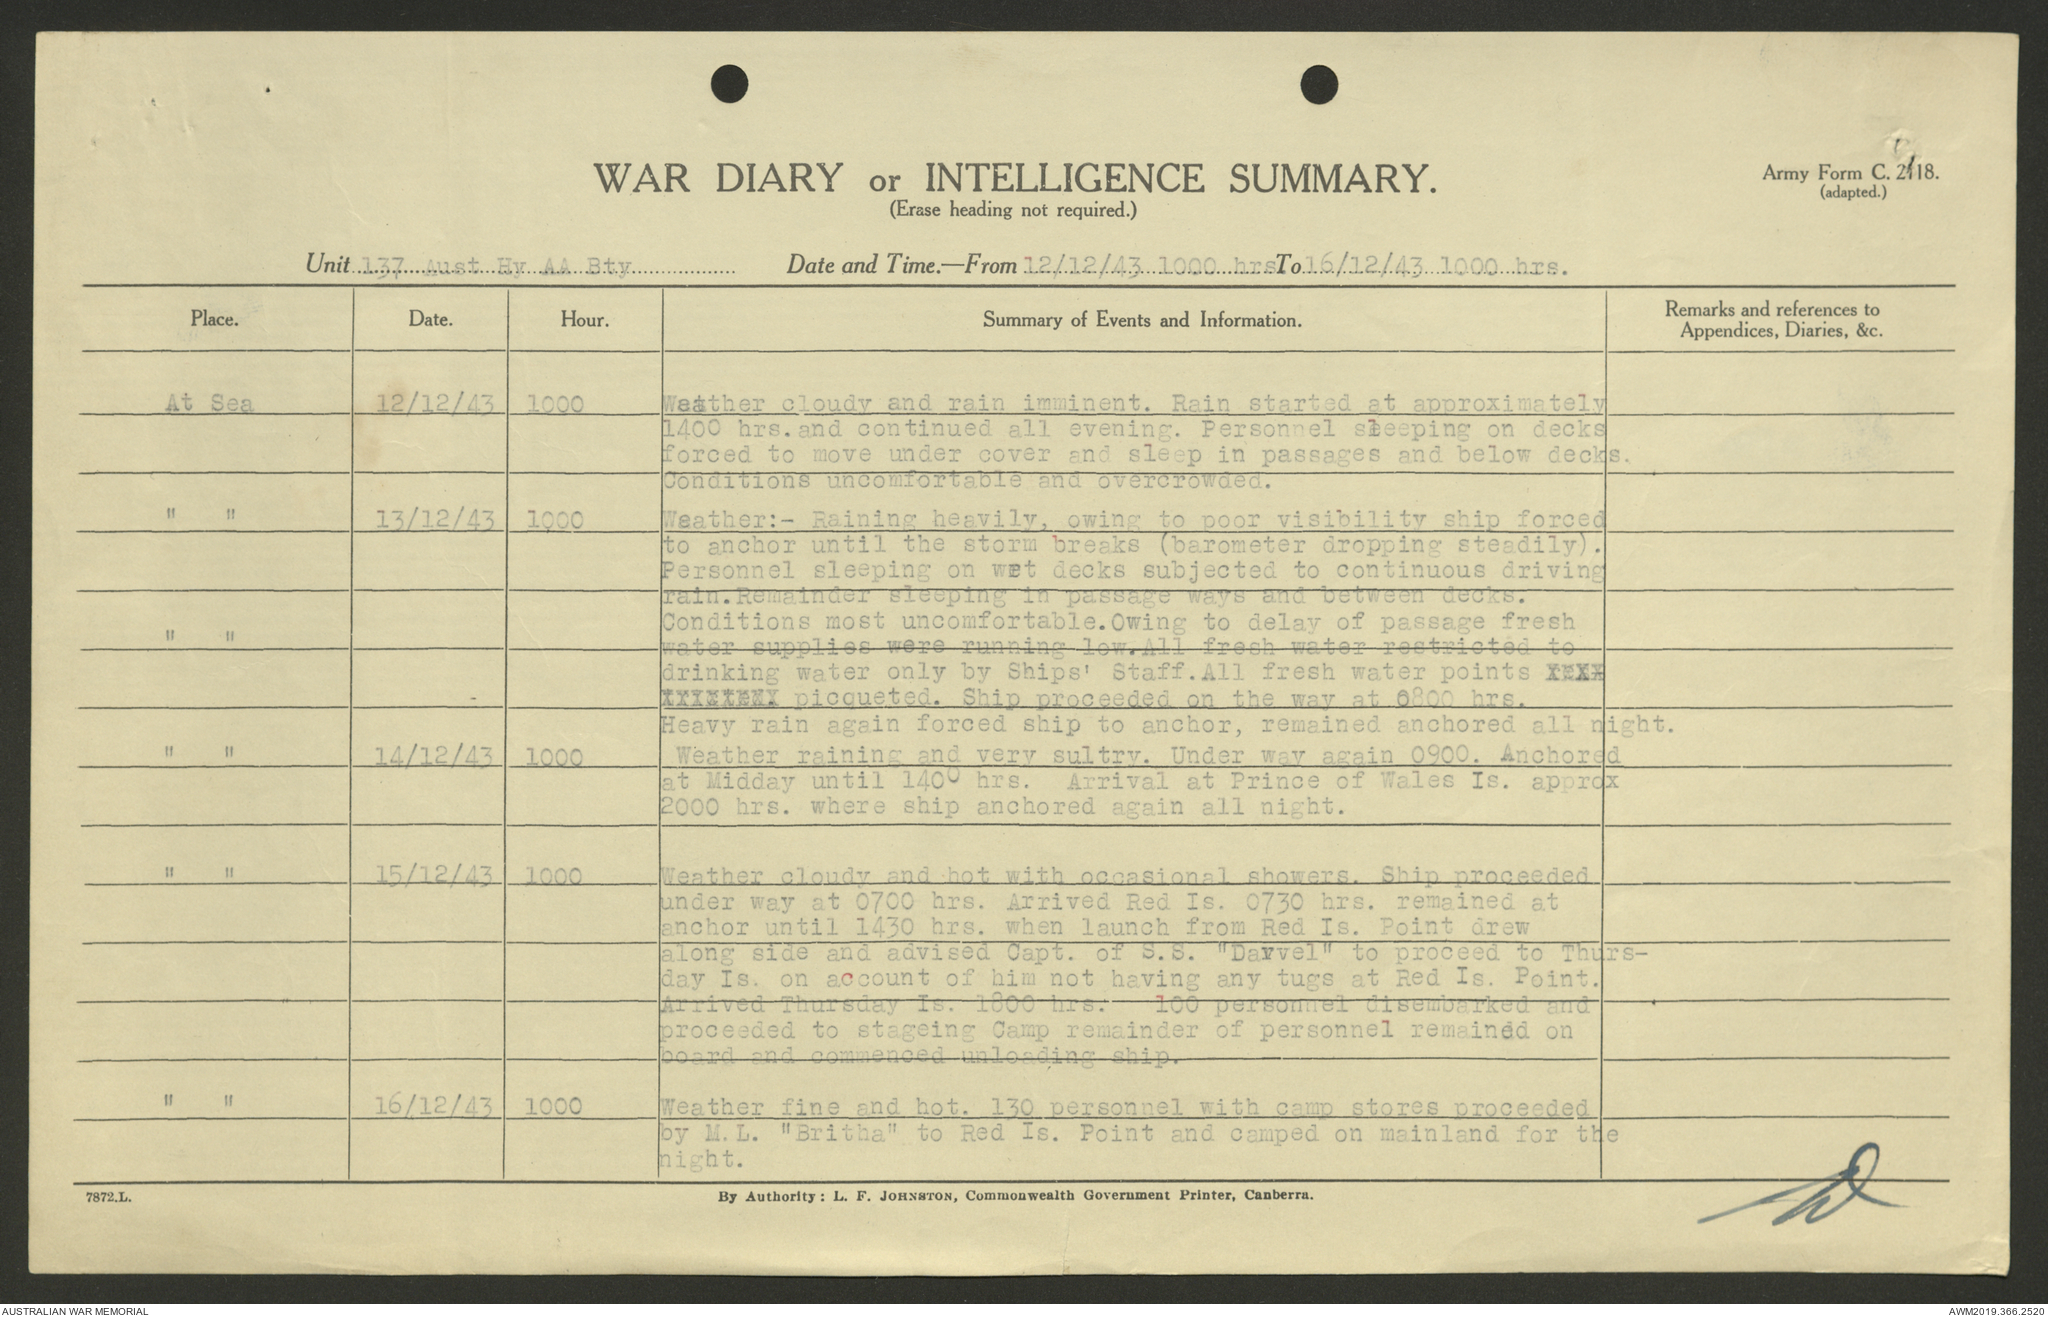 WAR DIARY or INTELLIGENCE SUMMARY.
(Erase heading not required.)
Army Form C. 2118.
(adapted.)
Unit 137 Aust Hy AA Bty Date and Time.—From 12/12/43 1000 hrs To 16/12/43 1000 hrs.
Place. Date. Hour. Summary of Events and Information. Remarks and references to
Appendices, Diaries, &c.
At Sea 12/12/43 1000 Weather cloudy and rain imminent. Rain started at approximately
1400 hrs.and continued all evening. Personnel sleeping on decks
forced to move under cover and sleep in passages and below decks.
Conditions uncomfortable and overcrowded.
" " 13/12/43 1000 Weather:- Raining heavily, owing to poor visibility ship forced
to anchor until the storm breaks (barometer dropping steadily).
Personnel sleeping on wet decks subjected to continuous driving
rain.Remainder sleeping in passage ways and between decks.
Conditions most uncomfortable.Owing to delay of passage fresh
" " water supplies were running low.All fresh water restricted to
drinking water only by Ships' Staff.All fresh water points
picqueted. Ship proceeded on the way at 0800 hrs.
Heavy rain again forced ship to anchor, remained anchored all night.
" " 14/12/43 1000 Weather raining and very sultry. Under way again 0900. Anchored
at Midday until 1400 hrs. Arrival at Prince of Wales Is. approx
2000 hrs. where ship anchored again all night.
" " 15/12/43 1000 Weather cloudy and hot with occasional showers. Ship proceeded
under way at 0700 hrs. Arrived Red Is. 0730 hrs. remained at
anchor until 1430 hrs. when launch from Red Is. Point drew
along side and advised Capt. of S.S. "Darvel" to proceed to Thurs-
day Is. on account of him not having any tugs at Red Is. Point.
Arrived Thursday Is. 1800 hrs. 100 personnel disembarked and
proceeded to stageing Camp remainder of personnel remained on
board and commenced unloading ship.
" " 16/12/43 1000 Weather fine and hot. 130 personnel with camp stores proceeded
by M.L. "Britha" to Red Is. Point and camped on mainland for the
night.
7872.L. By Authority: L. F. JOHNSTON, Commonwealth Government Printer, Canberra.
AUSTRALIAN WAR MEMORIAL AWM2019.366.2520